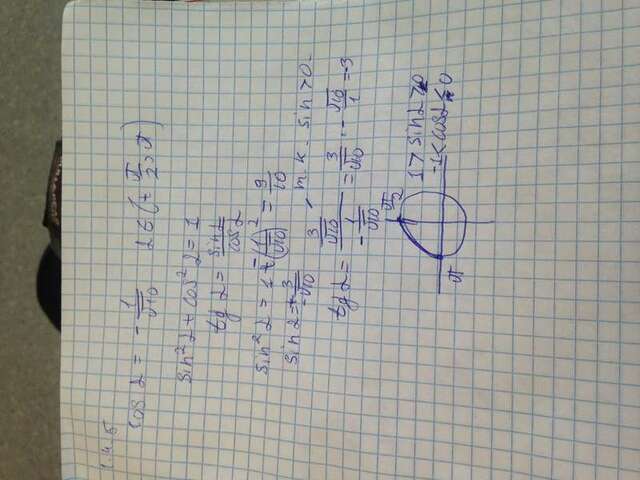 1.4.5
cos α = - 1/√10   α ∈ (π/2; π)
sin²α + cos²α = 1
tg α = sin α/cos α
sin²α = 1 - (1/√10)² = 9/10
sin α = ± 3/√10, т.к. sin > 0.
tg α = (3/√10)/(-1/√10) = 3/√10 · - √10/1 = -3
π/2
π
1 > sin α > 0
-1 < cos α < 0